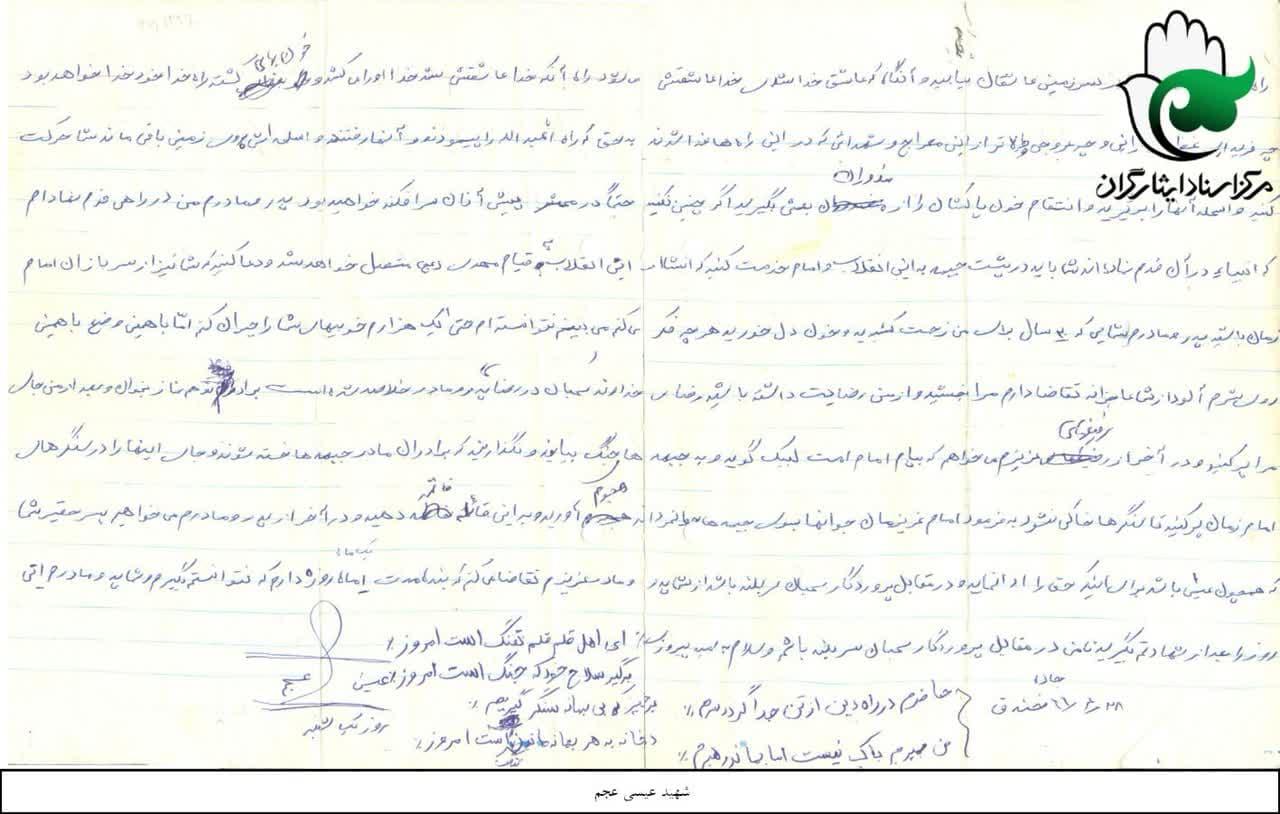 مرکز اسناد ایثارگران
سرزمینی عاشقان بیابید و آنگاه که عاشق خدا شدی خدا عاشقتش می شود و آنکه خدا عاشقتش شد خدا او را می کشد و خون بهای کشته راه خدا خود خدا خواهد بود
و چه عروجی والاتر از این معراج و شهدائی که در این راه ها فدا شدند بحق که راه ثارالله را پیمودند و آنها رفتند و اسلحه اش بروی زمین باقی ماند شما حرکت
کنید و اسلحه آنها را برگیرید و انتقام خون پاکشان را از مزدوران بعثی بگیرید اگر چنین نکنید حتماً در پیش آنان سرافکنده خواهید بود پدر و مادرم من در راهی قدم نهاده ام
که انبیاء در آن قدم نهاده اند شما باید در پشت جبهه به این انقلاب و امام خدمت کنید که انشاالله این انقلاب به قیام مهدی (عج) متصل خواهد شد و دعا کنید که شما نیز از سربازان امام
زمان باشید پدر و مادرم شمایی که ۲۰ سال برای من زحمت کشیدید و خون دل خوردید هر چه فکر می کنم می بینم نتوانسته ام حتی یک هزارم خوبیهای شما را جبران کنم اما با همین وضع با همین
روی شرم آلود از شما عاجزانه تقاضا دارم مرا ببخشید و از من رضایت داشته باشید رضای خداوند سبحان در رضای پدر و مادر خلاصه شده است برادرم تو هم نماز بخوان و بعد از من جای
مرا پر کنید و در آخر از رفیقهای عزیزم می خواهم که پیام امام امت لبیک گویند و به جبهه ها جنگ بیایند و نگذارید که برادران ما در جبهه ها خسته شوند و جای اینها را در سنگرهای
امام زمان پر کنید تا سنگرها خالی نشود به فرمود امام عزیزمان جوانها بسوی جبهه ها هجوم آورید و به این قائله خاتمه دهید و در آخر از پدر و مادرم می خواهم پسر حقیر شما
که همچون عیسی باشد برای اینکه حق را ادا نماید و در مقابل پروردگار سبحان سربلند باشد از شما پدر و مادر عزیزم تقاضا می کنم که بنده مدت یک ماه روزه دارم که نتوانستم بگیرم و شما پدر و مادر جزائی
روز را بعد از شهادتم بگیرید تا من در مقابل پروردگار سبحان سربلند باشم و سلام به امید پیروزی
ای اهل قلم قلم تفنگ است امروز ٪
برگیر سلاح خود که جنگ است امروز ٪
برخیز که بی بهانه سنگر گیریم ٪
در خانه به هر بهانه ماندن ننگ است امروز ٪
حاضرم در راه دین از تن جدا گردد سرم ٪
من بمیرم باک نیست اما بماند رهبرم ٪
عیسی عجم
روز یک شنبه
شهید عیسی عجم